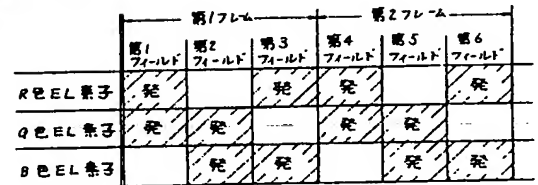 第1フレーム 第2フレーム
第1フィールド 第2フィールド 第3フィールド 第4フィールド 第5フィールド 第6フィールド
R色EL素子 発 発 発 発
G色EL素子 発 発 発 発
B色EL素子 発 発 発 発